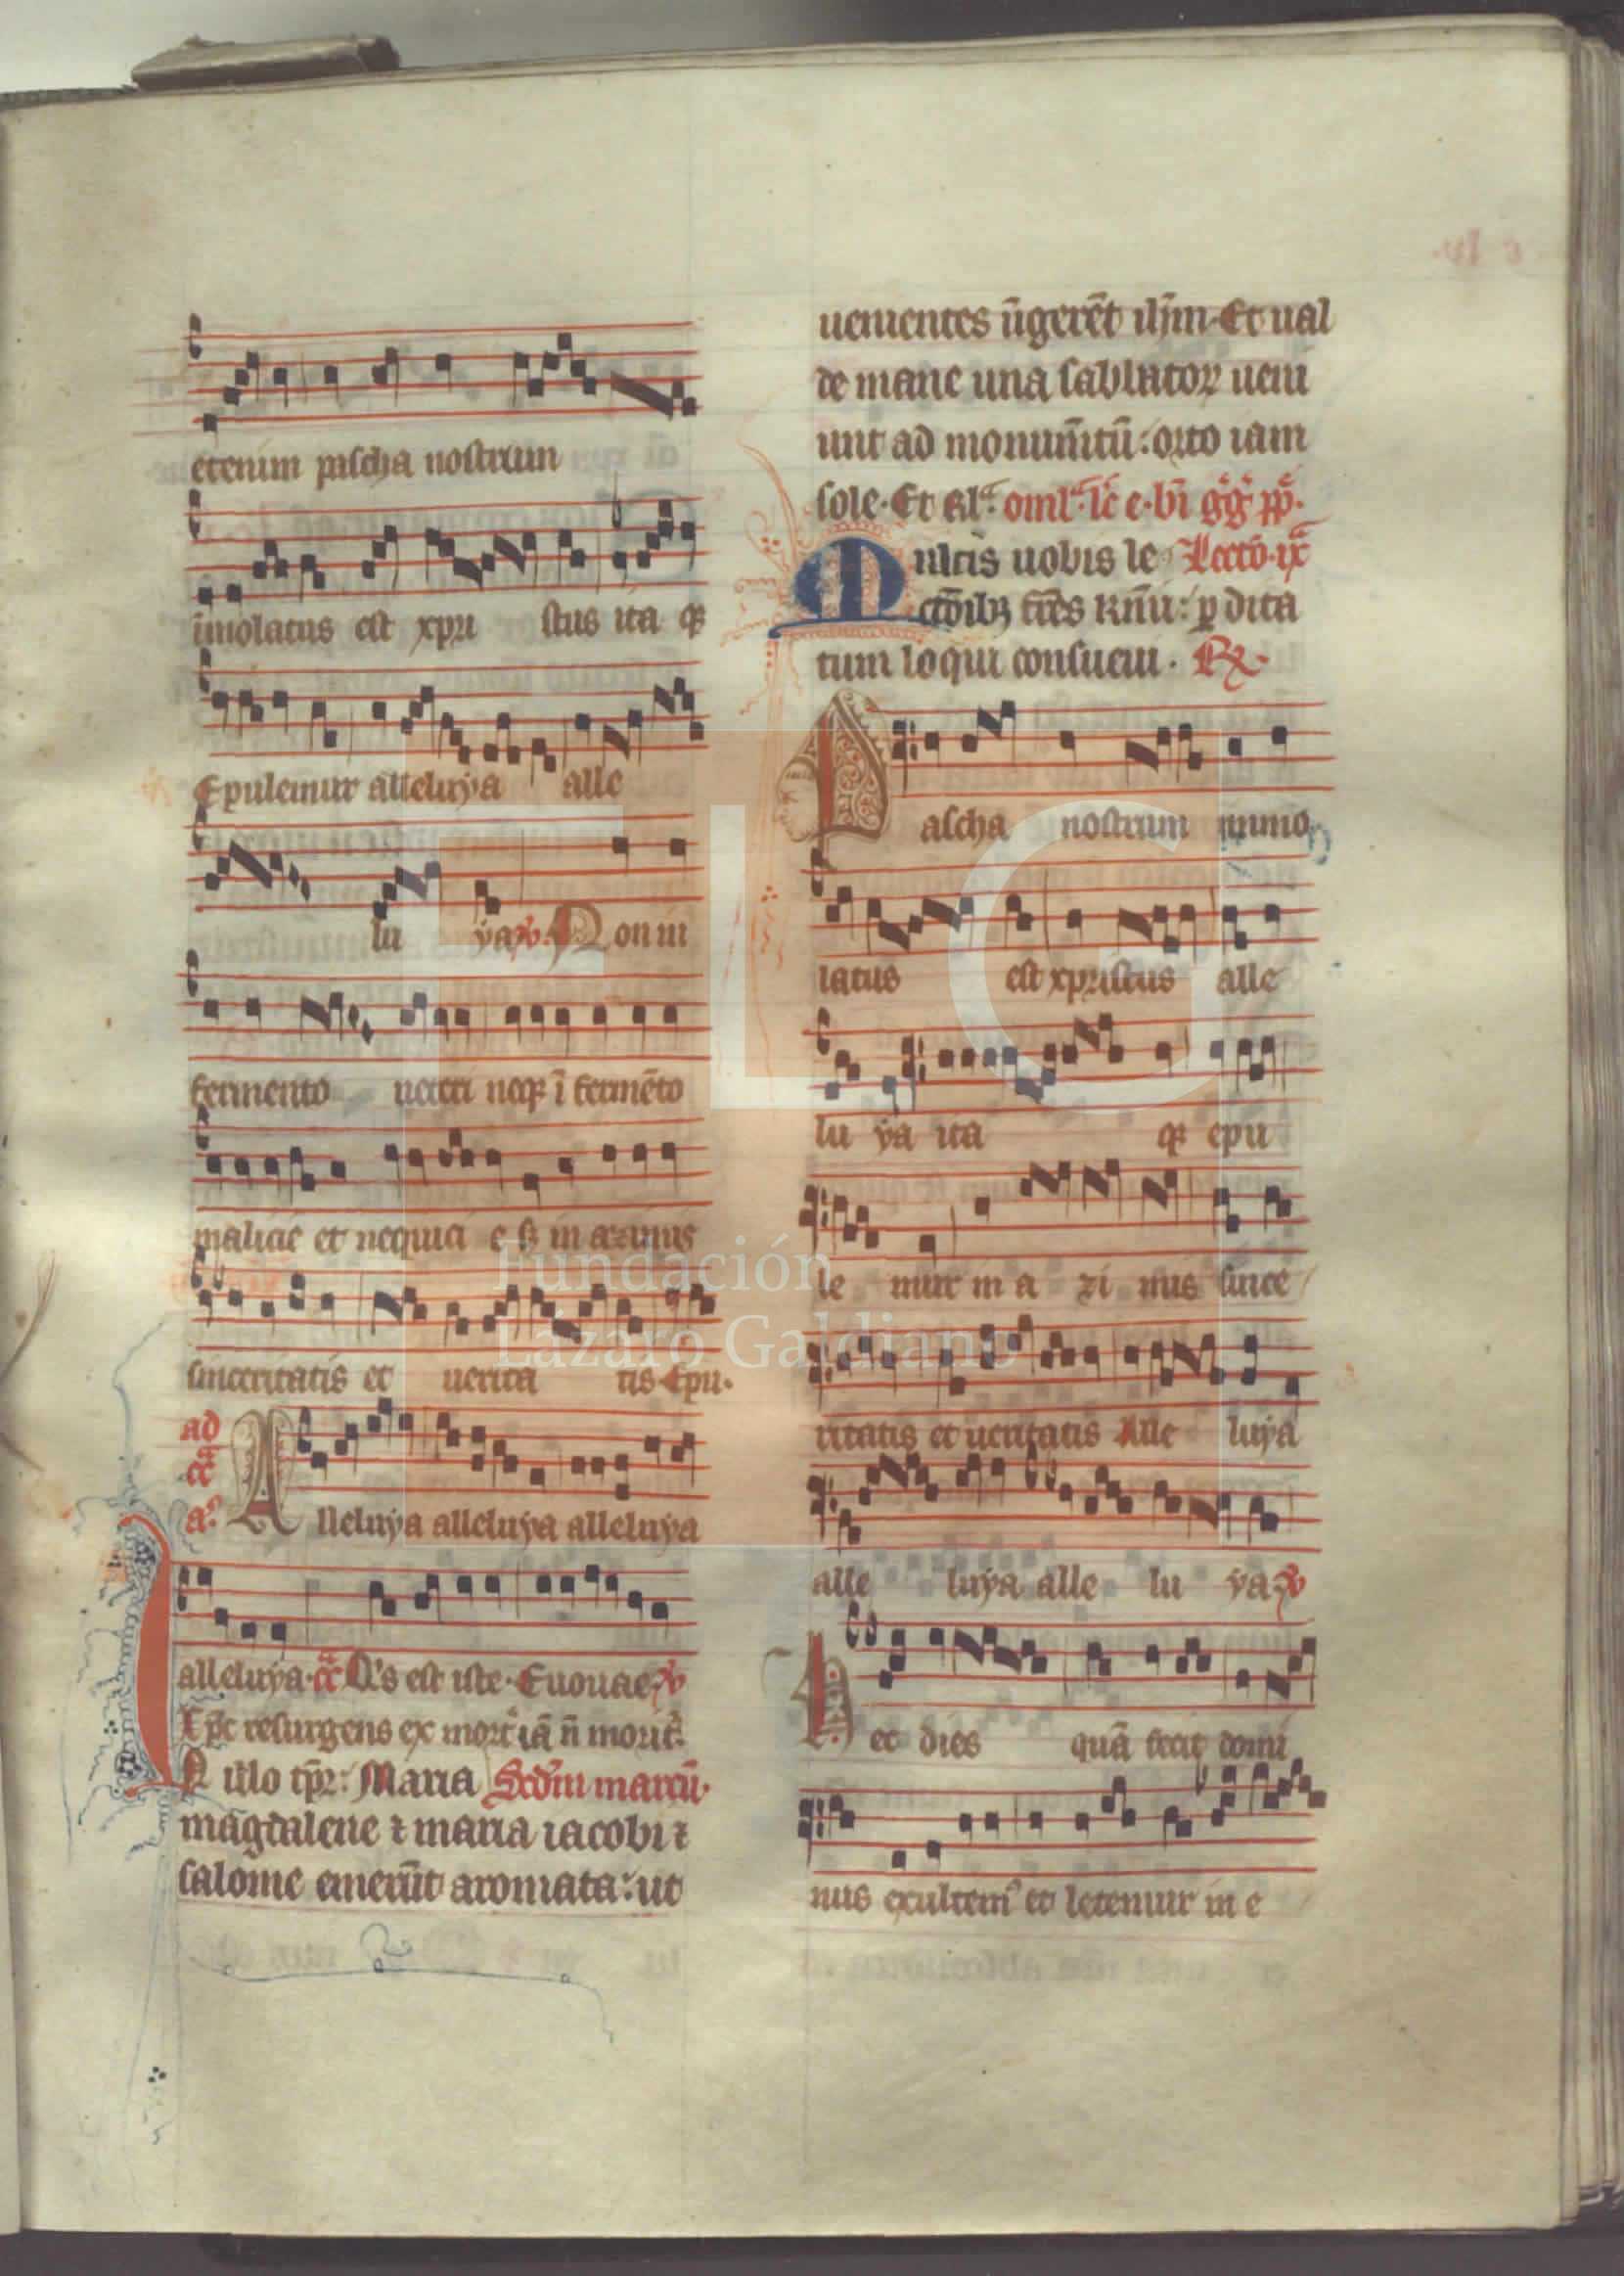 etenim pascha nostrum
īmolatus est xpri stus ita qꝫ
Epulemur alleluya alle
lu ya ℣ Non in
fermento ueteri neqꝫ ī fermēto
malicie et nequici e sꝫ in azimis
sinceritatis et uerita tis. Epu.
ad
cā
a.
Alleluya alleluya alleluya
alleluya. cā Q's est iste. Euouae ℣
Xp̄c resurgens ex mort' iā n̄ morit'.
In illo tp̄r: Maria Scd'm marcū.
magdalene ⁊ maria iacobi ⁊
salome emerūt aromata: ut
c lv.
uenientes ūgerēt ih̄m. Et ual
de mane una sabbatoꝝ ueni
unt ad monum̄tū: orto iam
sole. Et Rl'. oml'. lc̄ e. bī gg' pp'.
Multis uobis le Lecto. ix
ctōibꝫ fr̄es kn̄i: ꝑ dicta
tum loqui consueui. ℟.
Pascha nostrum immo
latus est xpristus alle
lu ya ita qꝫ epu
le mur in a zi mis since
ritatis et ueritatis Alle luya
alle luya alle lu ya ℣
Hec dies quā fecit domi
nus exultem' et letemur in e
Fundación
Lázaro Galdiano
FLG